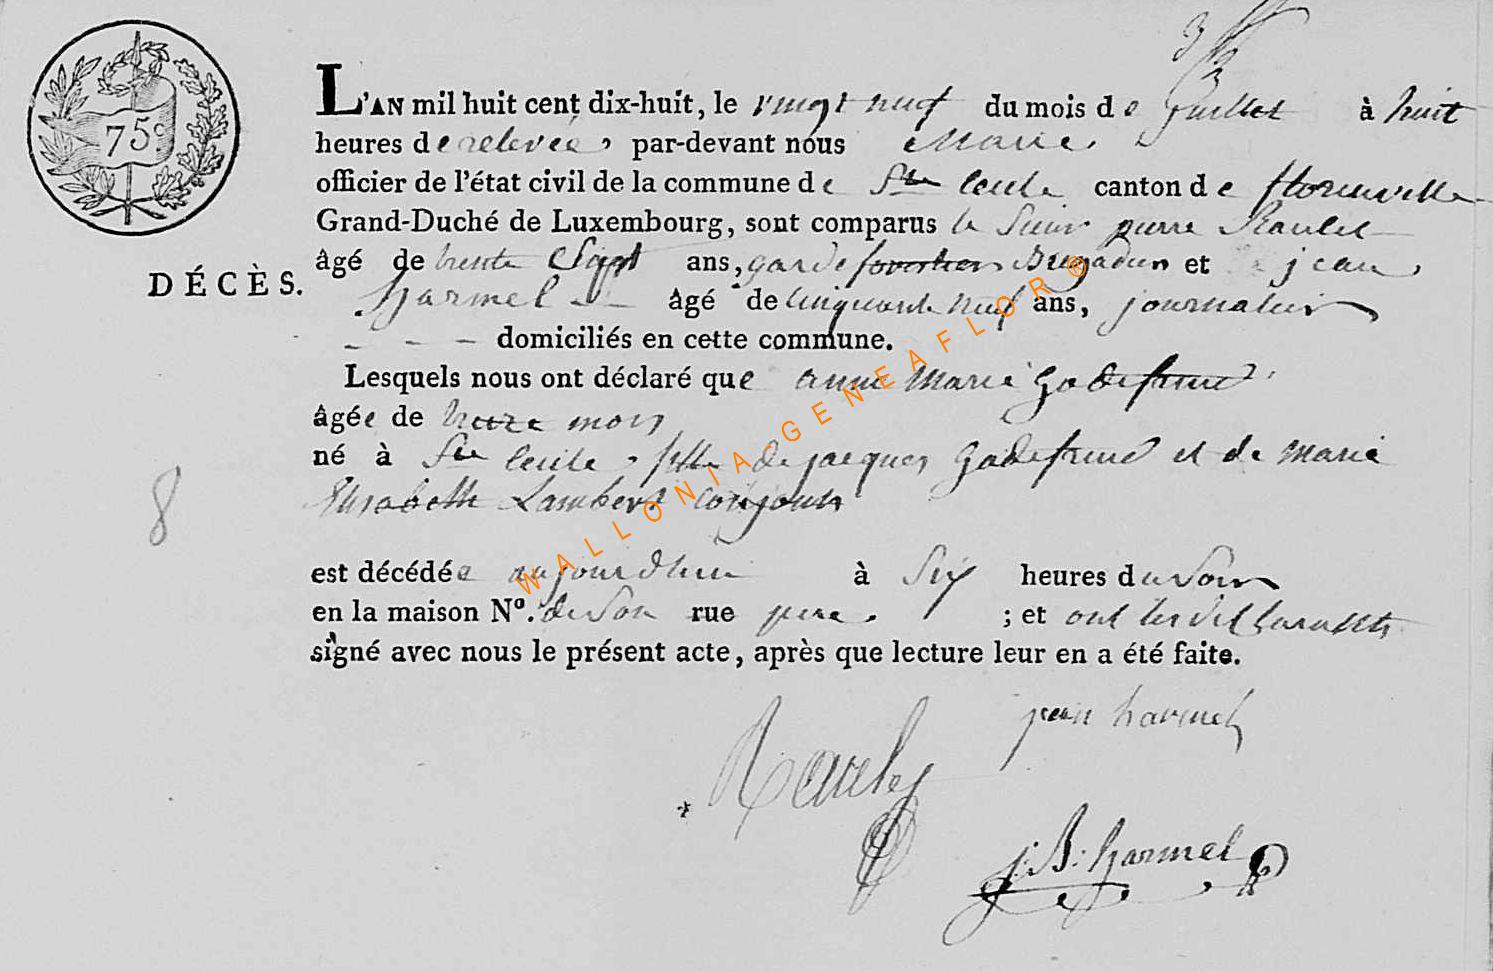 75c
L'AN mil huit cent dix-huit, le vingt neuf du mois de Juillet à huit
heures de relevée, par-devant nous Maire
officier de l'état civil de la commune de Ste Cecile canton de florenville
Grand-Duché de Luxembourg, sont comparus le Sieur pierre
DÉCÈS.
âgé de trente Sept ans, garde forestier Brigadier et jean
harmel âgé de cinquante neuf ans, journalier
domiciliés en cette commune.
Lesquels nous ont déclaré que anne Marie Godefrind
âgée de treize mois
né à Ste Cecile, fille de jacques Godefrind et de Marie
8
Elisabeth Lambert conjoints
est décédée aujourdhui à Six heures du Soir
en la maison No. de Son rue pere. ; et ont lesdits
signé avec nous le présent acte, après que lecture leur en a été faite.
jean harmel
J. B. harmel
WALLONIA-GENEAFLOR®